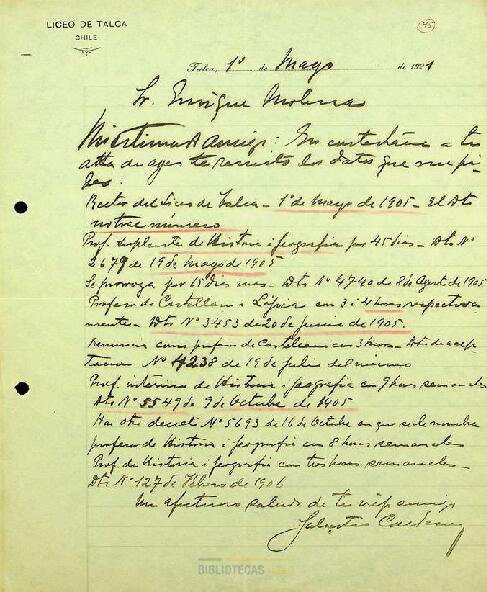 LICEO DE TALCA
CHILE
45
Talca, 1º de Mayo de 1921
Sr. Enrique Molina
Mi estimado amigo: En contestación a tu
atta de ayer te remito los datos que me pi-
des:
Rector del Liceo de Talca - 1º de Mayo de 1905 - El Dto
no trae número
Prof. suplente de Historia i Geografía por 45 días - Dto Nº
2679 de 19 de mayo de 1905
Se prorroga por 15 días mas - Dto Nº 4740 de 2 de Agost. de 1905
Profesor de Castellano i Lójica con 3 i 4 horas respectiva
mente - Dto Nº 3453 de 20 de Junio de 1905.
Renuncia como profesor de Castellano con 3 horas - Dto de acep-
tación Nº 4238 de 19 de julio del mismo
Prof. interino de Historia i Geografía con 9 horas semanales
Dto Nº 5549 de 9 de Octubre de 1905
Hai otro decreto Nº 5693 de 16 de Octubre en que se le nombra
profesor de Historia i Geografía con 8 horas semanales
Prof. de Historia i Geografía con tres horas semanales -
Dto Nº 127 de Febrero de 1906
Un afectuoso saludo de tu viejo amigo
BIBLIOTECAS